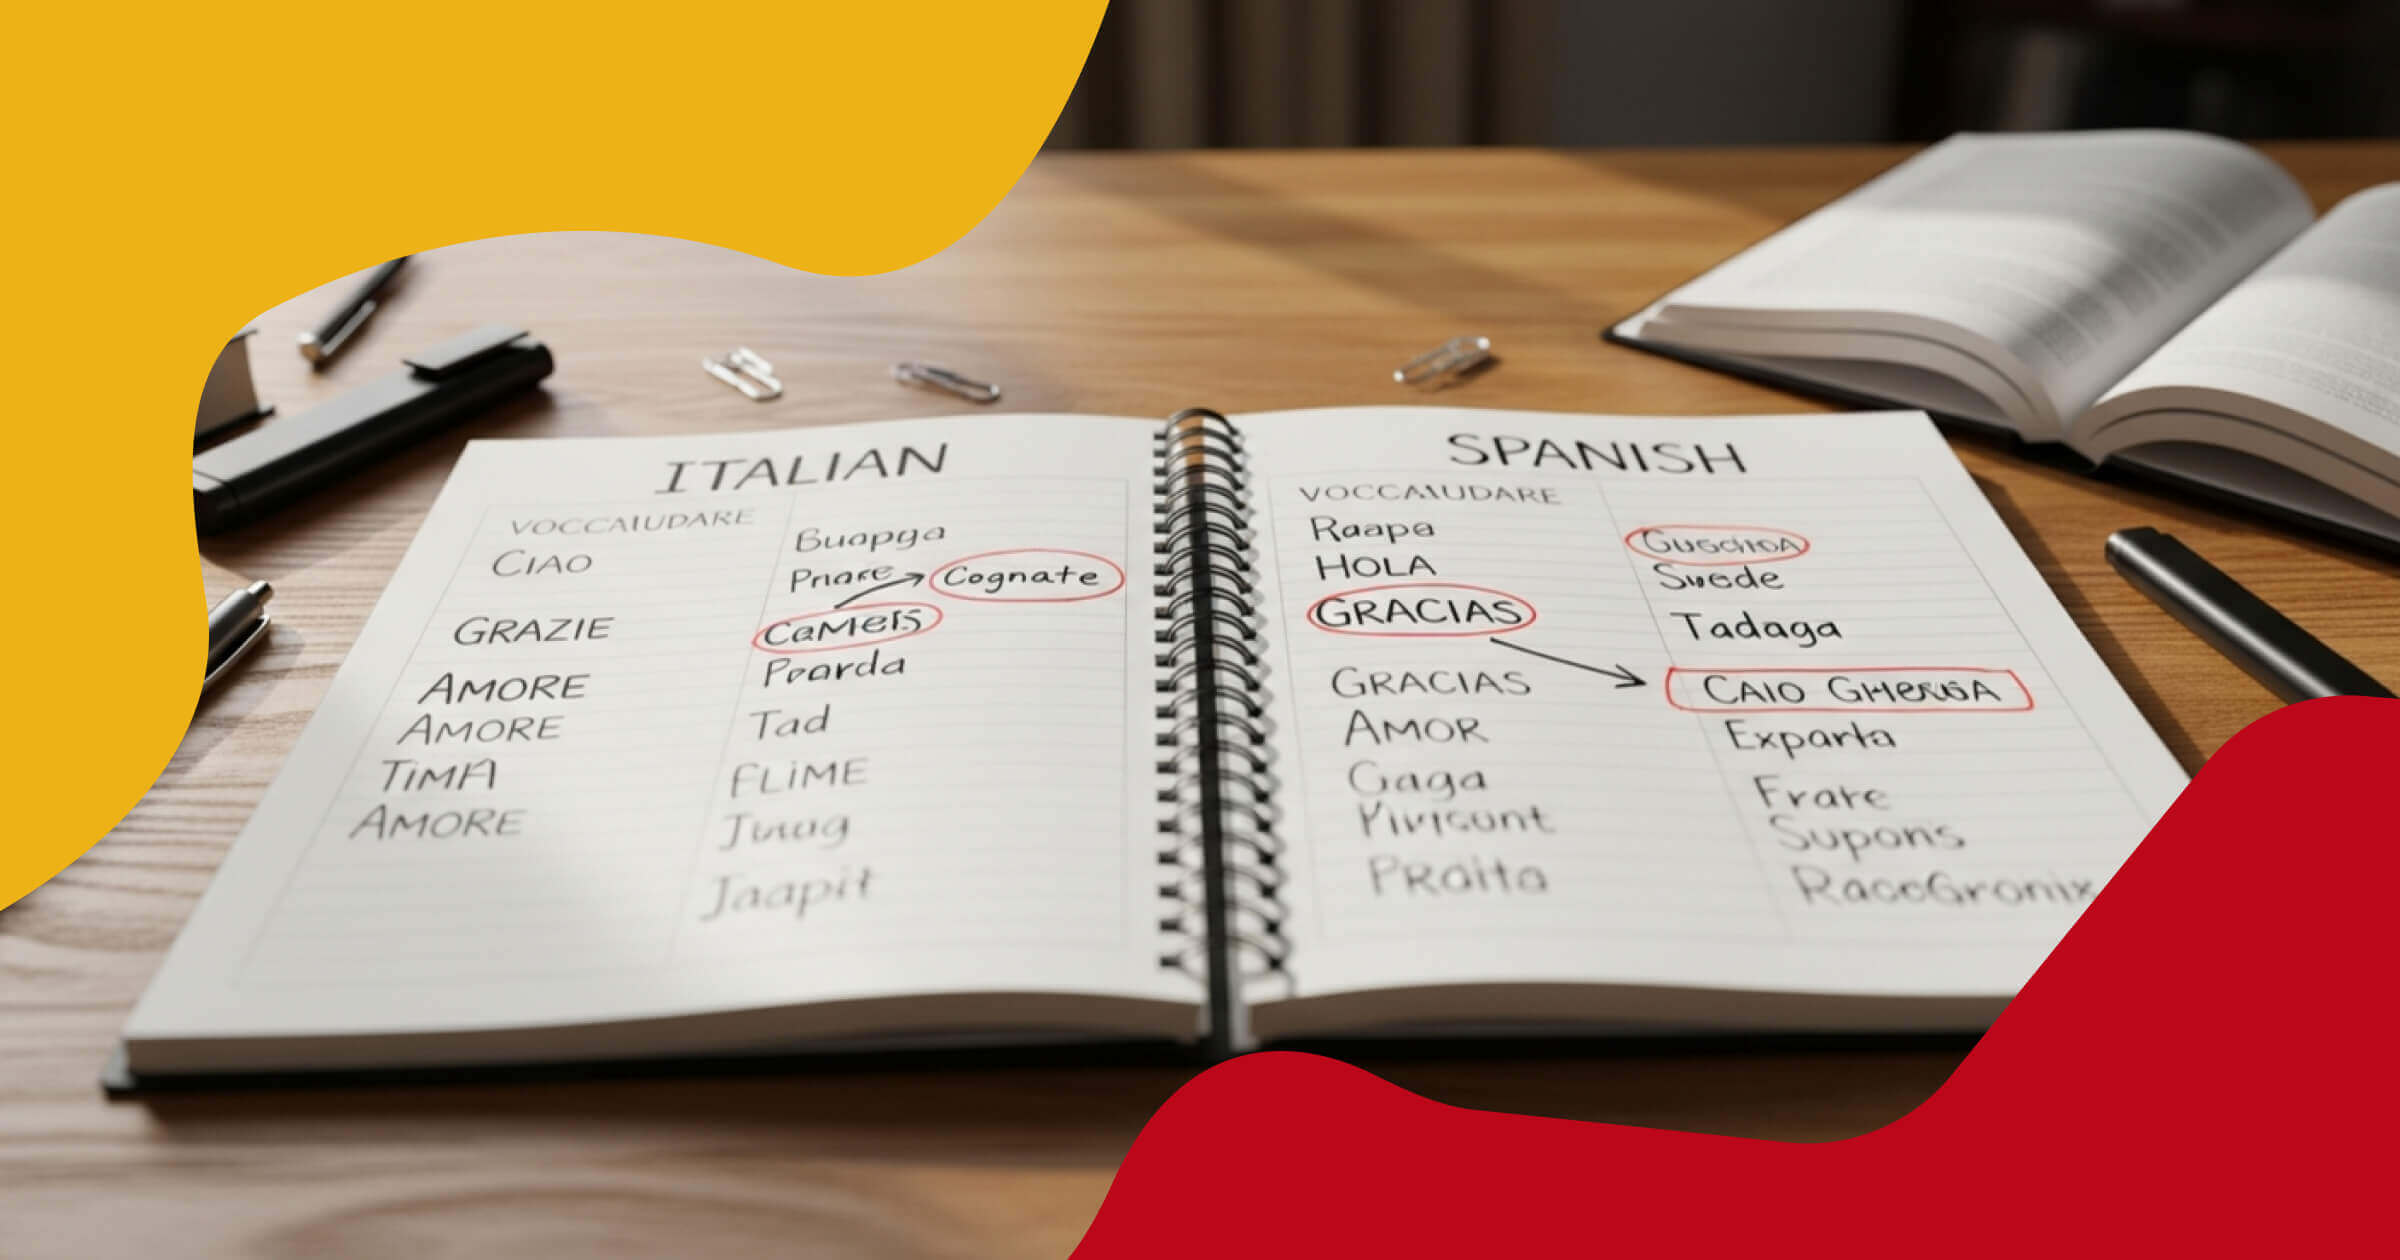 ITALIAN
VOCCAIUDARE
CIAO
GRAZIE
AMORE
AMORE
TiMA
AMORE
Buapga
Priare
Cognate
CaMers
Pearda
Tad
FLiME
Jaapit
SPANISH
VOCCAIUDARE
Raapa
HOLA
GRACIAS
GRACIAS
AMOR
Gaga
PRaita
Suede
Tadaga
CAIO
Exparta
Frate
Supons
RacoGronix